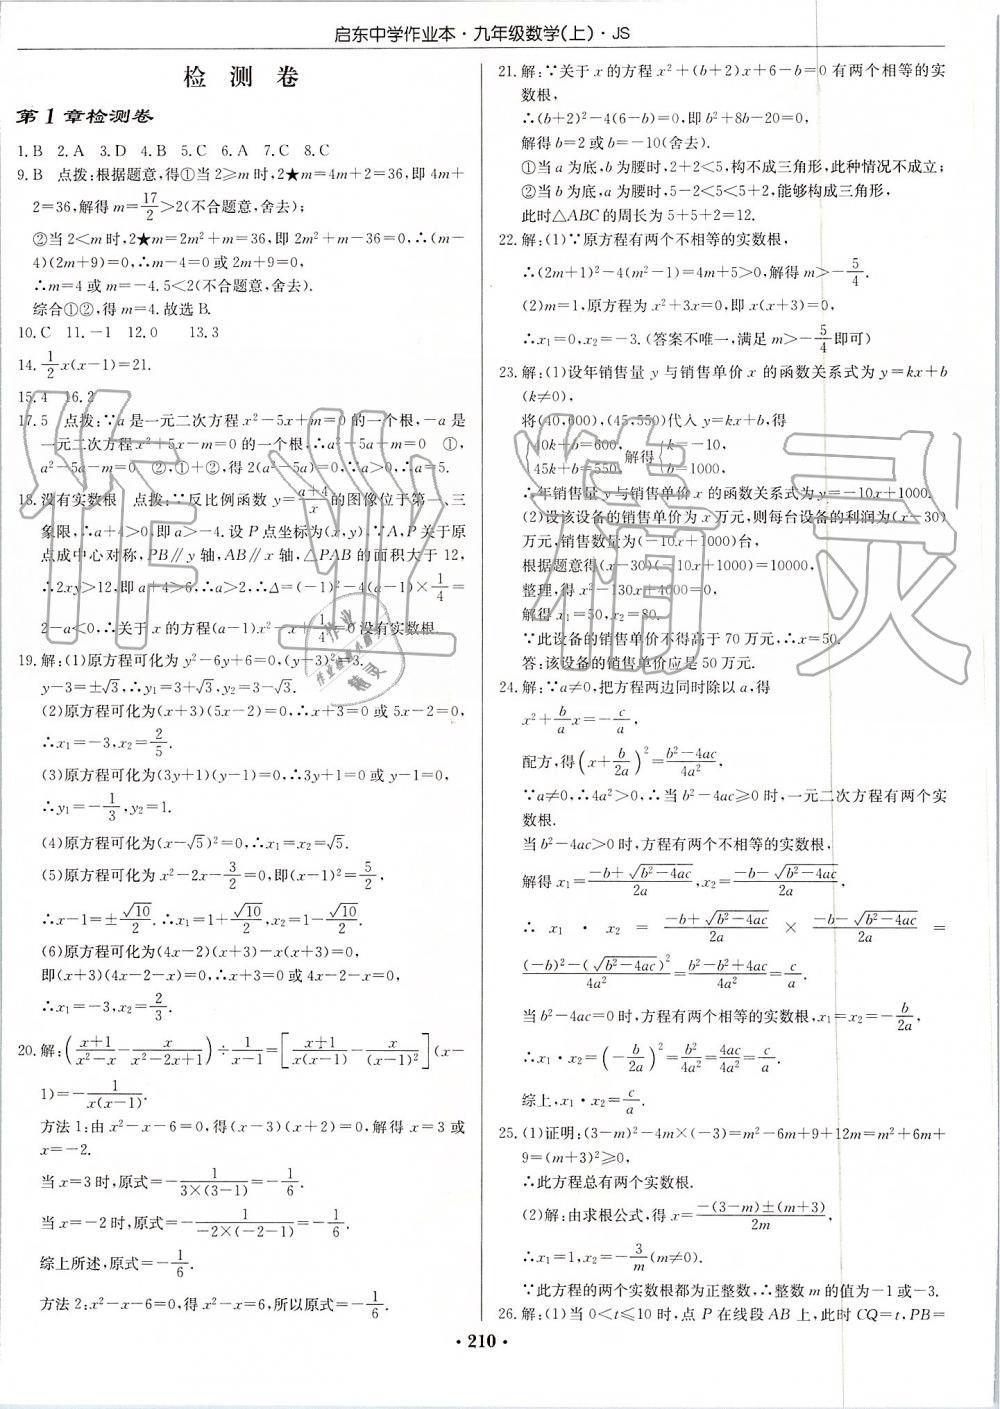 启东中学作业本·九年级数学(上)·JS
检 测 卷
第1章检测卷
1.B 2.A 3.D 4.B 5.C 6.A 7.C 8.C
9.B 点拨:根据题意,得①当2≥m时,2★m=4m+2=36,即4m+
2=36,解得m=17/2>2(不合题意,舍去);
②当2<m时,2★m=2m²+m=36,即2m²+m-36=0,∴(m-
4)(2m+9)=0,∴m-4=0或2m+9=0,
∴m=4或m=-4.5<2(不合题意,舍去).
综合①②,得m=4.故选B.
10.C 11.-1 12.0 13.3
14.1/2x(x-1)=21.
15.4 16.2
17.5 点拨:∵a是一元二次方程x²-5x+m=0的一个根,-a是
一元二次方程x²+5x-m=0的一个根,∴a²-5a+m=0 ①,
a²-5a-m=0 ②,①+②,得2(a²-5a)=0,∵a>0,∴a=5.
18.没有实数根 点拨:∵反比例函数y=(a+4)/x的图像位于第一、三
象限,∴a+4>0,即a>-4.设P点坐标为(x,y).∵A,P关于原
点成中心对称,PB∥y轴,AB∥x轴,△PAB的面积大于12,
∴2xy>12,即a+4>6,∴a>2.∴Δ=(-1)²-4(a-1)×1/4=
2-a<0,∴关于x的方程(a-1)x²-x+1/4=0没有实数根.
19.解:(1)原方程可化为y²-6y+6=0,(y+3)²=3.
y-3=±√3,∴y₁=3+√3,y₂=3-√3.
(2)原方程可化为(x+3)(5x-2)=0,∴x+3=0或5x-2=0,
∴x₁=-3,x₂=2/5.
(3)原方程可化为(3y+1)(y-1)=0,∴3y+1=0或y-1=0,
∴y₁=-1/3,y₂=1.
(4)原方程可化为(x-√5)²=0,∴x₁=x₂=√5.
(5)原方程可化为x²-2x-3/2=0,即(x-1)²=5/2,
∴x-1=±√10/2.∴x₁=1+√10/2,x₂=1-√10/2.
(6)原方程可化为(4x-2)(x+3)-x(x+3)=0,
即(x+3)(4x-2-x)=0,∴x+3=0或4x-2-x=0,
∴x₁=-3,x₂=2/3.
20.解:((x+1)/(x²-x)-x/(x²-2x+1))÷1/(x-1)=[(x+1)/(x(x-1))-x/(x-1)²](x-
1)=-1/(x(x-1)).
方法1:由x²-x-6=0,得(x-3)(x+2)=0,解得x=3或
x=-2.
当x=3时,原式=-1/(3×(3-1))=-1/6.
当x=-2时,原式=-1/(-2×(-2-1))=-1/6.
综上所述,原式=-1/6.
方法2:x²-x-6=0,得x²-x=6,所以原式=-1/6.
21.解:∵关于x的方程x²+(b+2)x+6-b=0有两个相等的实
数根,
∴(b+2)²-4(6-b)=0,即b²+8b-20=0,
解得b=2或b=-10(舍去).
①当a为底,b为腰时,2+2<5,构不成三角形,此种情况不成立;
②当b为底,a为腰时,5-2<5<5+2,能够构成三角形,
此时△ABC的周长为5+5+2=12.
22.解:(1)∵原方程有两个不相等的实数根,
∴(2m+1)²-4(m²-1)=4m+5>0,解得m>-5/4.
(2)m=1,原方程为x²+3x=0,即x(x+3)=0,
∴x₁=0,x₂=-3.(答案不唯一,满足m>-5/4即可)
23.解:(1)设年销售量y与销售单价x的函数关系式为y=kx+b
(k≠0),
将(40,600),(45,550)代入y=kx+b,得
{40k+b=600, 45k+b=550,解得{k=-10, b=1000,
∴年销售量y与销售单价x的函数关系式为y=-10x+1000.
(2)设该设备的销售单价为x万元,则每台设备的利润为(x-30)
万元,销售数量为(-10x+1000)台,
根据题意得(x-30)(-10x+1000)=10000,
整理,得x²-130x+4000=0,
解得x₁=50,x₂=80.
∵此设备的销售单价不得高于70万元,∴x=50.
答:该设备的销售单价应是50万元.
24.解:∵a≠0,把方程两边同时除以a,得
x²+b/a x=-c/a,
配方,得(x+b/2a)²=(b²-4ac)/4a²,
∵a≠0,∴4a²>0,∴当b²-4ac≥0时,一元二次方程有两个实
数根.
当b²-4ac>0时,方程有两个不相等的实数根,
解得x₁=(-b+√(b²-4ac))/2a,x₂=(-b-√(b²-4ac))/2a,
∴x₁·x₂=(-b+√(b²-4ac))/2a×(-b-√(b²-4ac))/2a=
((-b)²-(√(b²-4ac))²)/4a²=(b²-b²+4ac)/4a²=c/a.
当b²-4ac=0时,方程有两个相等的实数根,x₁=x₂=-b/2a,
∴x₁·x₂=(-b/2a)²=b²/4a²=4ac/4a²=c/a.
综上,x₁·x₂=c/a.
25.(1)证明:(3-m)²-4m×(-3)=m²-6m+9+12m=m²+6m+
9=(m+3)²≥0,
∴此方程总有两个实数根.
(2)解:由求根公式,得x=(-(3-m)±(m+3))/2m,
∴x₁=1,x₂=-3/m(m≠0).
∵此方程的两个实数根都为正整数,∴整数m的值为-1或-3.
26.解:(1)当0<t≤10时,点P在线段AB上,此时CQ=t,PB=
·210·
作业精灵